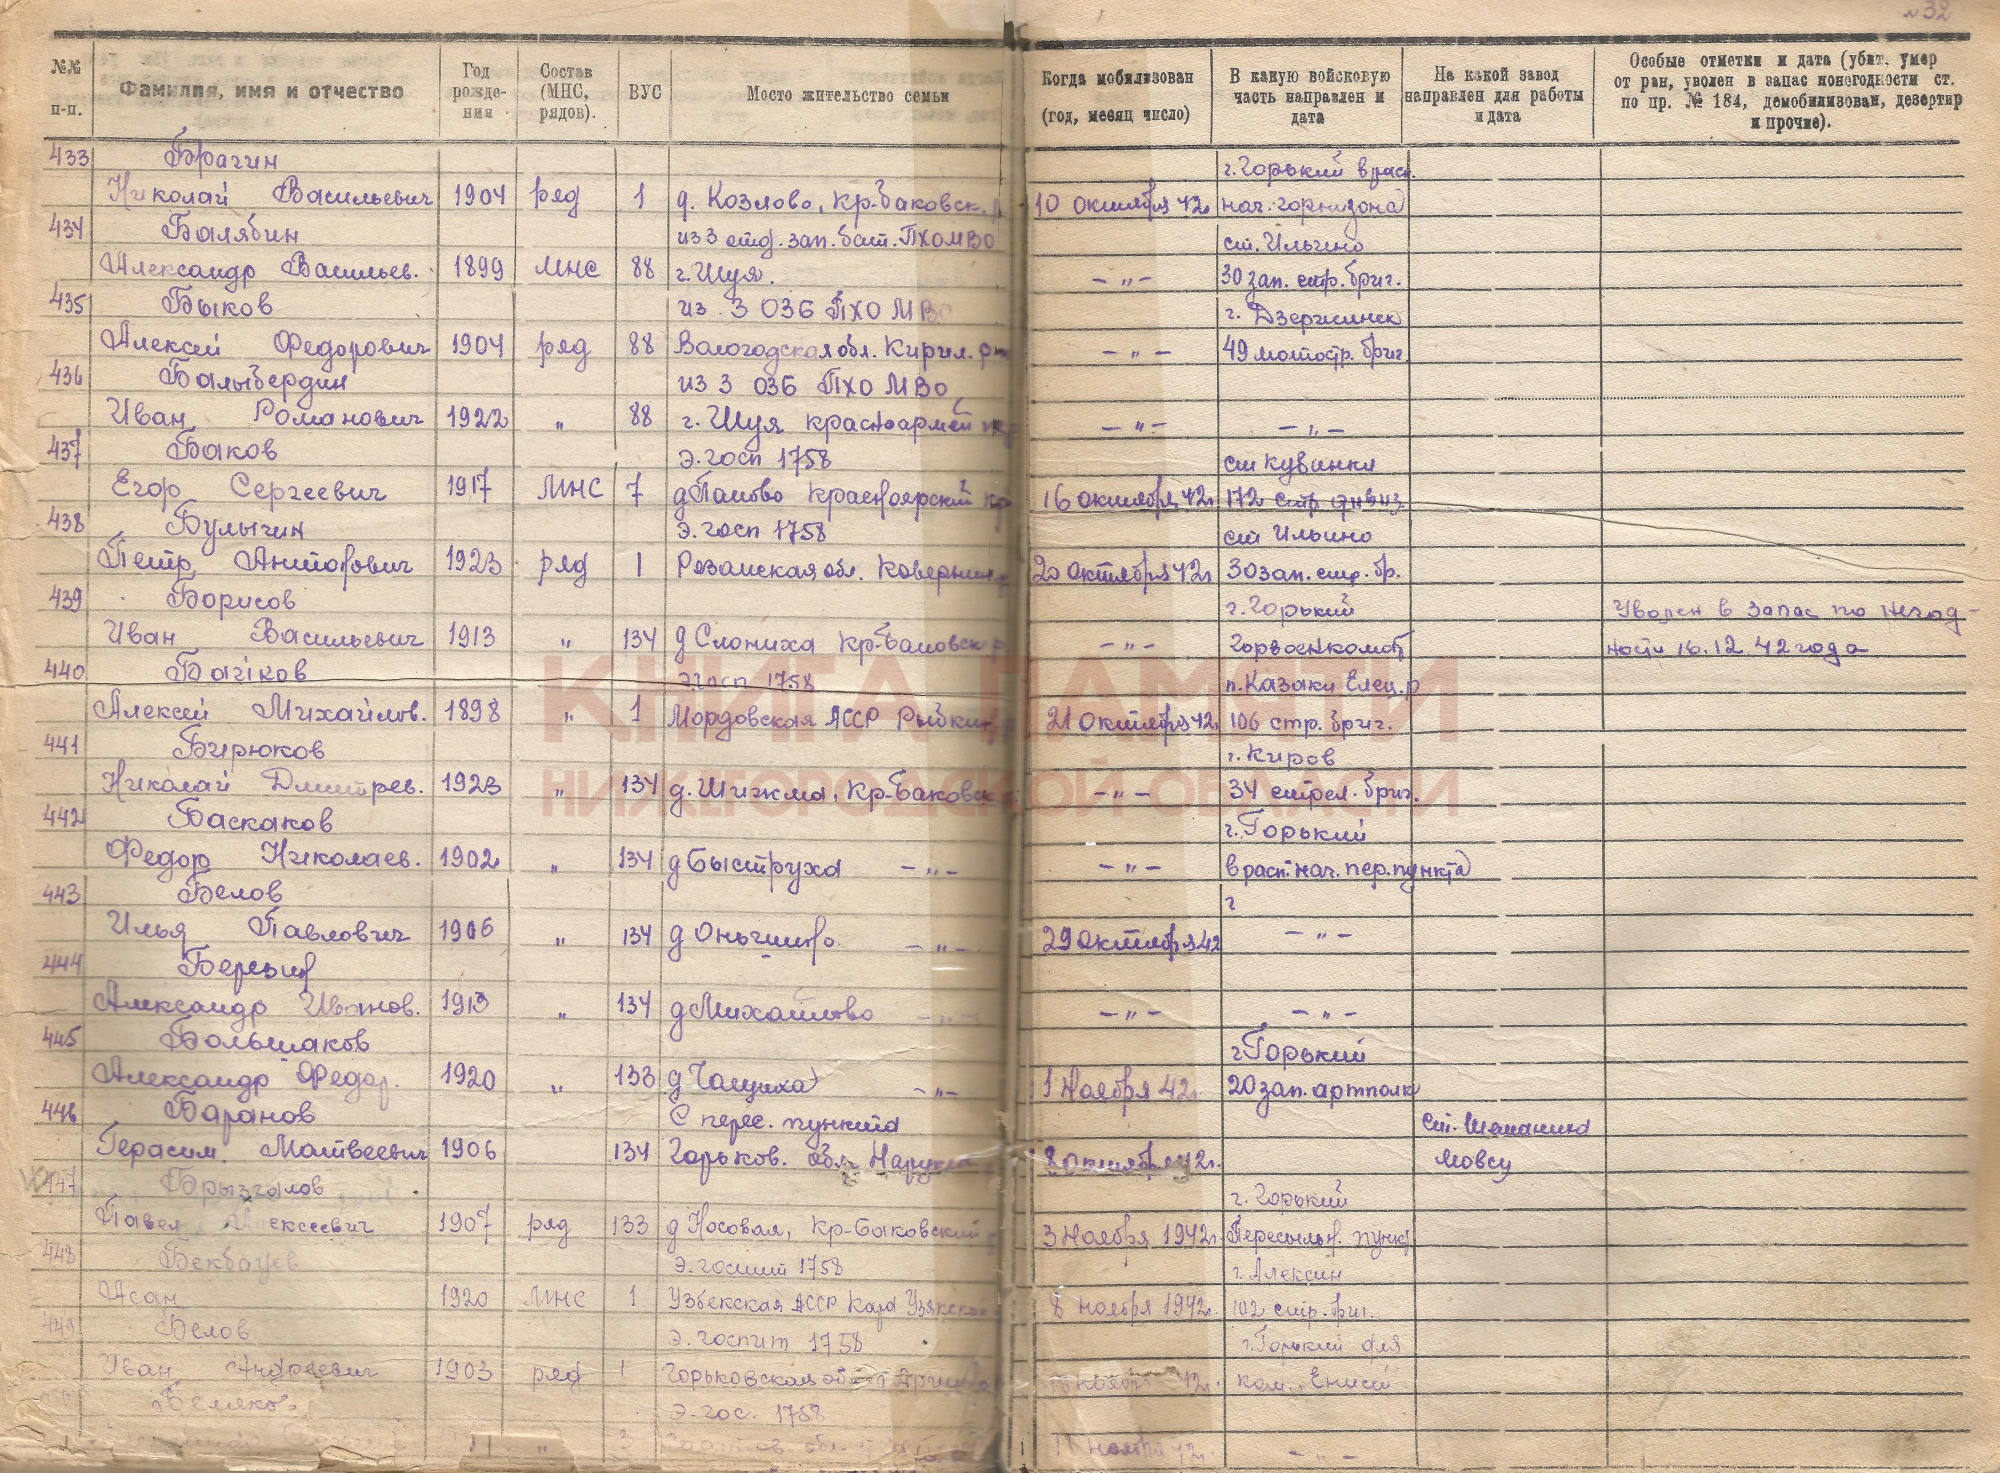 № 32
№№ п-п. Фамилия, имя и отчество Год рожде-ния Состав (МНС, рядов). ВУС Место жительство семьи Когда мобилизован (год, месяц число) В какую войсковую часть направлен и дата На какой завод направлен для работы и дата Особые отметки и дата (убит, умер от ран, уволен в запас понегодности ст. по пр. № 184, демобилизован, дезертир и прочие).
433 Брагин г. Горький в расп.
Николай Васильевич 1904 ряд 1 д. Козлово, Кр-Баковск. 10 октября 42г. нач. горнизона
434 Балябин из 3 отд. зап. бат. ПХОМВО ст. Ильино
Александр Васильев. 1899 МНС 88 г. Шуя. – „ – 30 зап. стр. бриг.
435 Быков из 3 036 ПХО МВО г. Дзержинск
Алексей Федорович 1904 ряд 88 Вологодская обл. Кирил. – „ – 49 мотостр. бриг
436 Балыбердин из 3 036 ПХО МВО
Иван Романович 1922 „ 88 г. Шуя красноармей – „ – – „ –
437 Баков Э. госп 1758 ст Кубинка
Егор Сергеевич 1917 МНС 7 Красноярский кр 16 октября 42г. 172 стр див
438 Булыгин Э. госп 1758 ст Ильино
Петр 1923 ряд 1 Резанская обл. 20 октября 42г. 30 зап. стр. бр.
439 Борисов г. Горький Уволен в запас по негод-
Иван Васильевич 1913 „ 134 д Слониха Кр-Баковск – „ – Горвоенкомат ности 16.12.42 года
440 Э. госп 1758 п. Казаки Елец. р
Алексей Михайлов. 1898 „ 1 Мордовская АССР Рыбкин 21 октября 42г. 106 стр. бриг.
441 Бирюков г. Киров
Николай Дмитрев. 1923 „ 134 Кр-Баковск – „ – 34 стрел. бриг.
442 Баскаков г. Горький
Федор Николаев. 1902 „ 134 д Быструха – „ – – „ – в расп. нач. пер. пункта
443 Белов г
Илья Павлович 1906 „ 134 д – „ – 29 октября 42 – „ –
444
Александр Иванов. 1913 „ 134 д Михайлово – „ – – „ – – „ –
445 Большаков г Горький
Александр Федор. 1920 „ 133 д – „ – 1 ноября 42г. 20 зап. артполк
446 Баранов С перес. пункта ст.
Герасим. Матвеевич 1906 134 Горьков. обл. 8 октября 42г.
447 Брызгалов г. Горький
Павел Алексеевич 1907 ряд 133 д Носовая, Кр-Баковский 3 ноября 1942г. Пересыльн. пункт
448 Бекбауев Э. госпит 1758 г. Алексин
Исан 1920 МНС 1 Узбекская АССР 8 ноября 1942г. 102 стр. бриг.
449 Белов Э. госпит 1758 г. Горький для
Иван Андреевич 1903 ряд 1 Горьковская ноября 42г. ком.
Беляков Э. гос. 1758
„ обл. ноября 42г. – „ –
КНИГА ПАМЯТИ
НИЖЕГОРОДСКОЙ ОБЛАСТИ